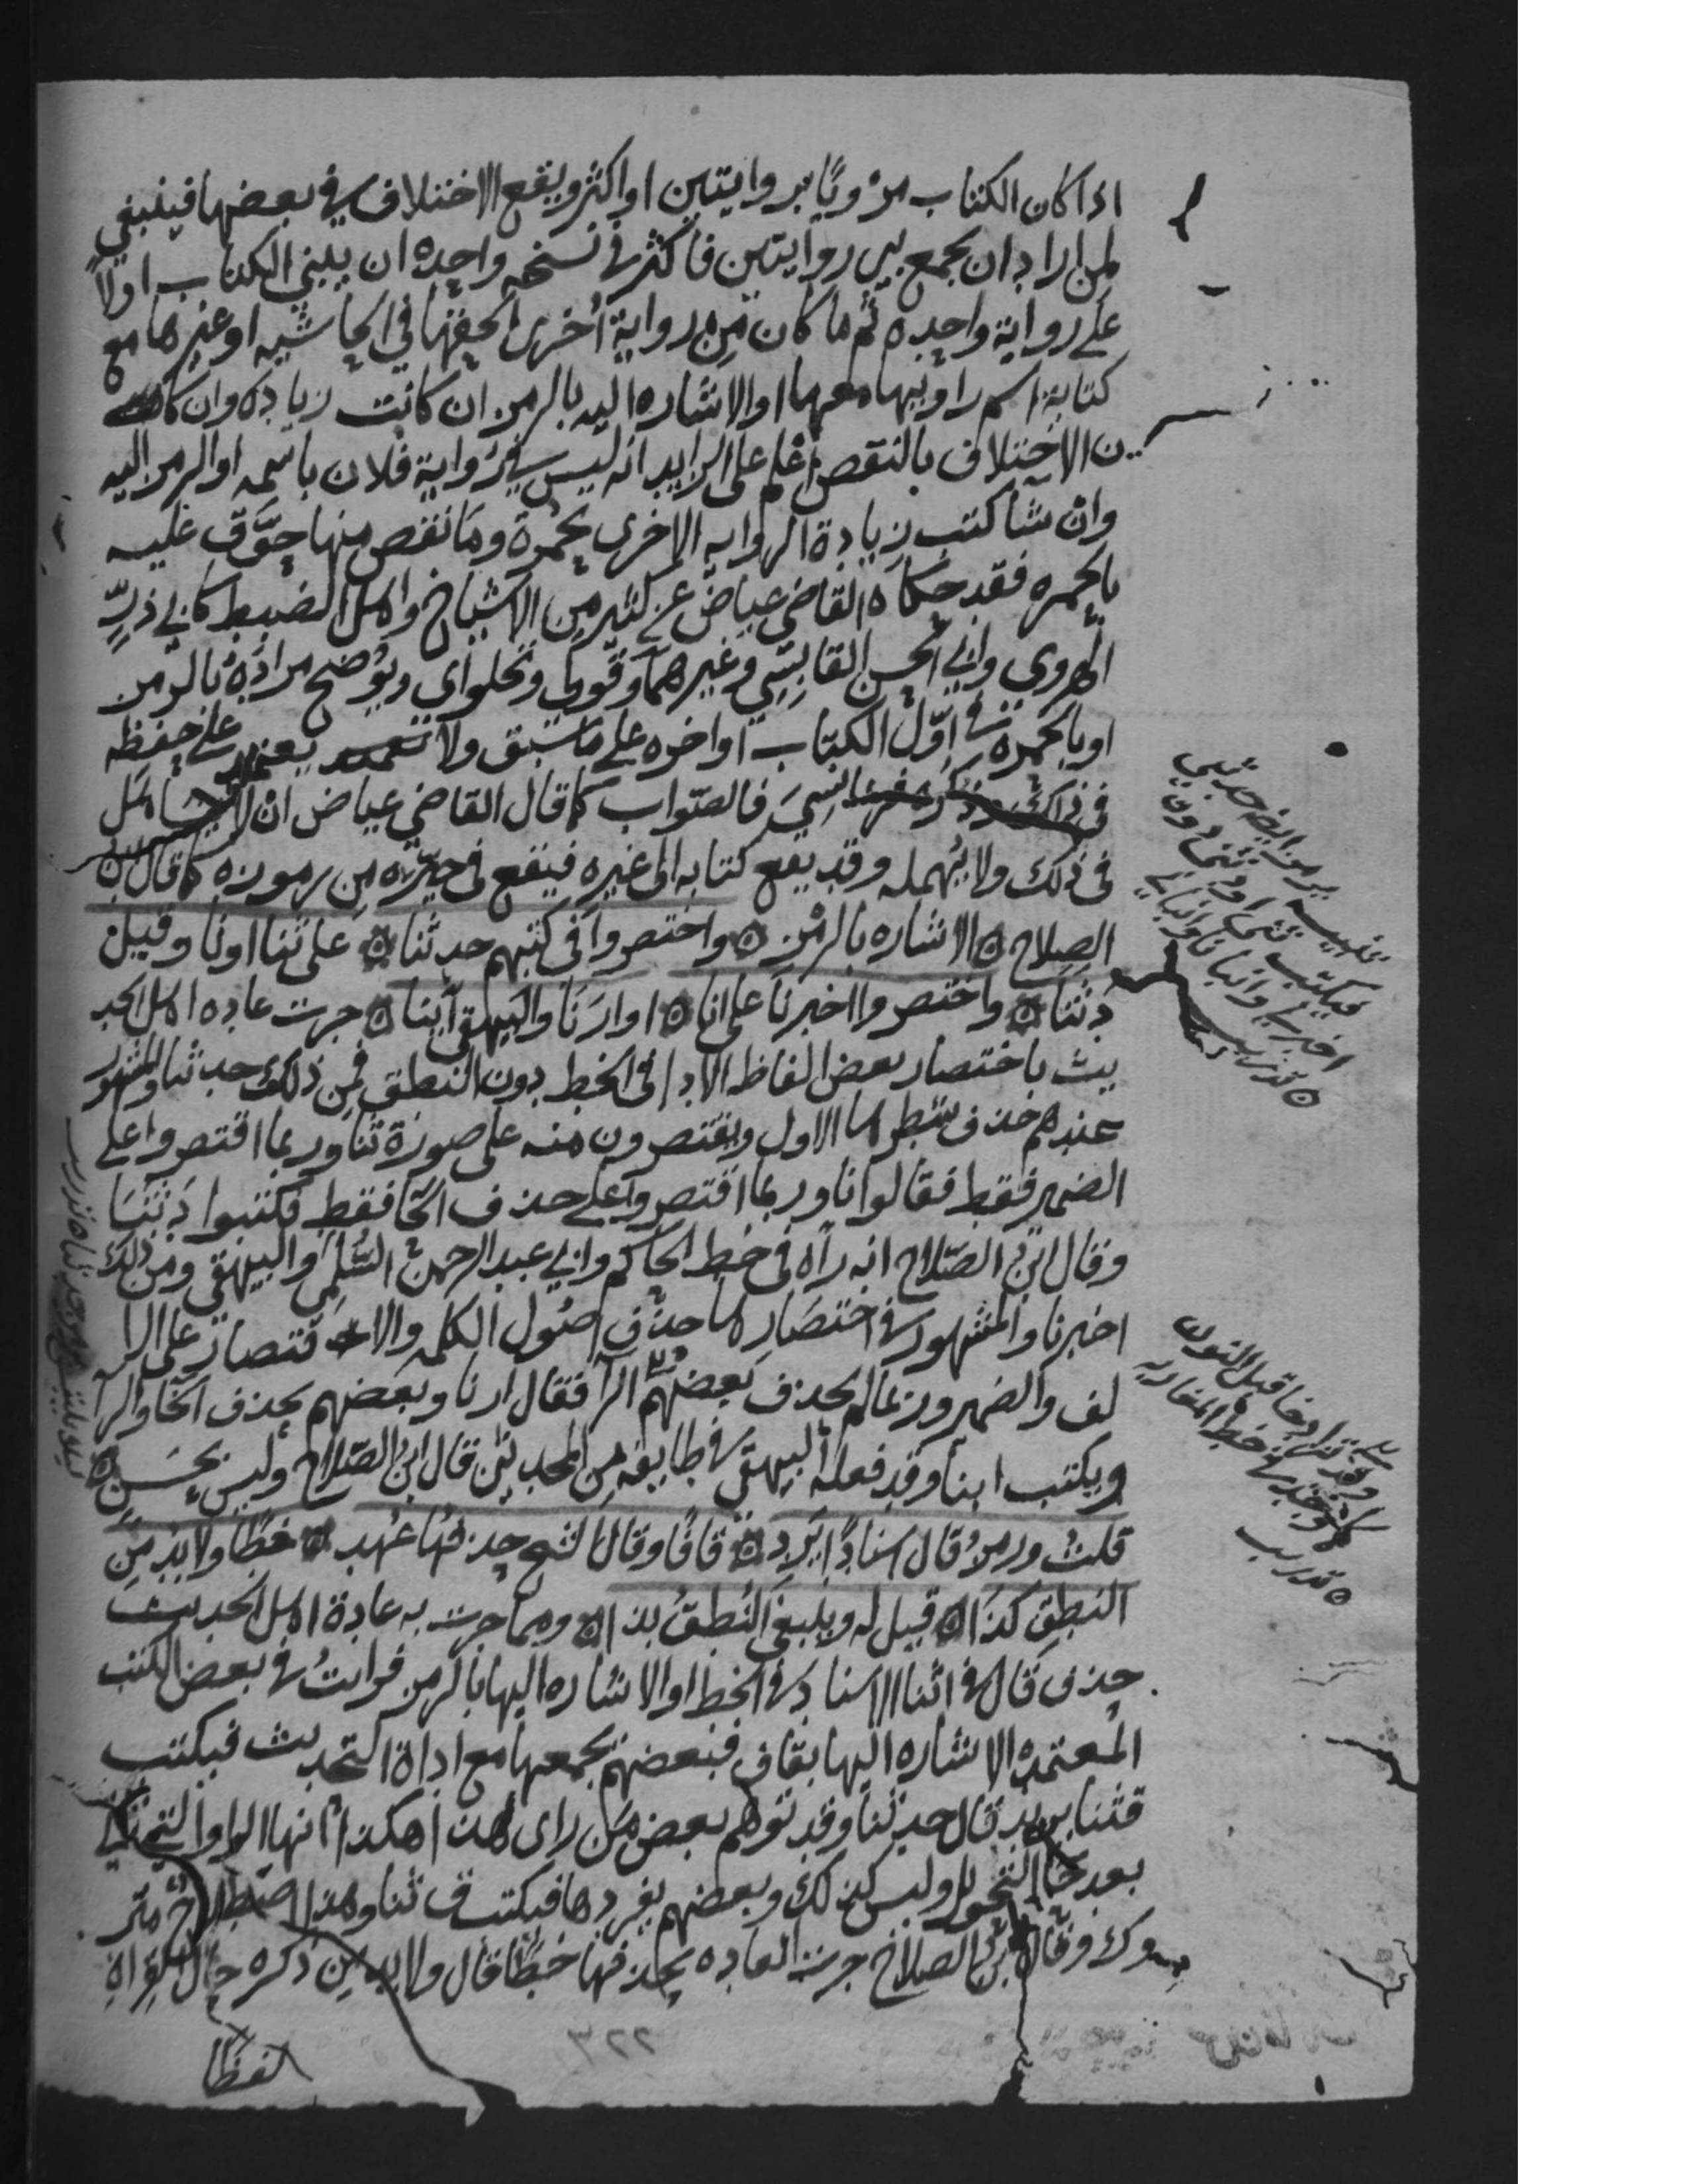 اذا كان الكتاب مرويًا بروايتين او اكثر ويقع الاختلاف في بعضها فينبغي
لمن اراد ان يجمع بين روايتين فاكثر في نسخه واحده ان يبني الكتاب اولًا
على رواية واحده ثم ما كان من رواية اخرى الحقها في الحاشيه او غيرها مع
كتابة اسم راويها معها او الاشاره اليه بالرمز ان كانت زياده وان كانت
ن الاختلاف بالنقص اعلم على الزايد انه ليس في رواية فلان باسمه او الرمز اليه
وان شا كتب زيادة الروايه الاخرى بحمرة وما نقص منها حوّق عليه
بالحمره فقد حكاه القاضي عياض عن كثير من الاشياخ واهل الضبط كابي ذرّ
الهروي وابي الحسن القابسي وغيرهما وقولي وتحلواي ويوضح مراده بالرمز
او بالحمرة في اوّل الكتاب او اخره على ما سبق ولا يعتمد على حفظه
في ذلك نسي فالصواب كما قال القاضي عياض ان لا يتساهل
في ذلك ولا يُهمله وقد يقع كتابه الى غيره فيقع في حيره من رموزه كما قال ابن
الصلاح ه الاشاره بالرمز ه واختصروا في كتبهم حدثنا ه على ثنا او نا وقيل
دثنا ه واختصروا اخبرنا على انا ه او ارنا والبيهقي ابنا ه جرت عاده اهل الحد
يث باختصار بعض الفاظ الادا في الخط دون النطق فمن ذلك حدثنا والمشهور
عندهم حذف شطرها الاول ويقتصرون منه على صورة ثنا وربما اقتصروا على
الضمير فقط فقالوا نا وربما اقتصروا على حذف الحا فقط فكتبوا دثنا
وقال ابن الصّلاح انه رآه في خط الحاكم وابي عبد الرحمن السُّلمي والبيهقي ومن ذلك
اخبرنا والمشهور في اختصارها حذف اصول الكلمه والاقتصار على الا
لف والضمير وربما لم يحذف بعضهم الرا فقال ارنا وبعضهم يحذف الخا والرا
ويكتب ابنا وقد فعله البيهقي في طايفه من المحدثين قال ابن الصّلاح وليس بحسن ه
قلت ورمز قال اسنادًا يَرد ه قافًا وقال الشيخ حذفها عُهد ه خطًا ولا بد من
النطق كذا ه قيل له وينبغي النطق بذا ه ومما جرت به عادة اهل الحديث
حذف قال في اثنا الاسناد في الخط او الاشاره اليها بالرمز فرايتُ في بعض الكتب
المعتمده الاشاره اليها بقاف فبعضهم يجمعها مع اداة التحديث فيكتب
قثنا يريد قال حدثنا وقد توهم بعض من راى هذا هكذا انها الواو التي تاتي
بعد حا التحويل وليس كذلك وبعضهم يفردها فيكتب ق ثنا وهذا اصطلاح متر
وك وقال ابن الصلاح جرت العاده بحذفها خطًا قال ولا بد من ذكره حال القراة
لفظًا
يرمز ايضا حدثني
فيكتب ثني او دثني دون
اخبرني وانبانا وانباني
ه تدريب
وقد تزاد خا قبل النون
وجد في خط المغاربه
ه تدريب
٢٢٣